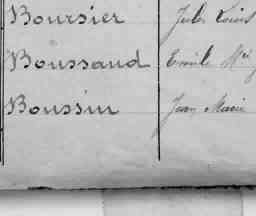 Boursier Jules Louis
Boussaud Emile
Boussin Jean Marie